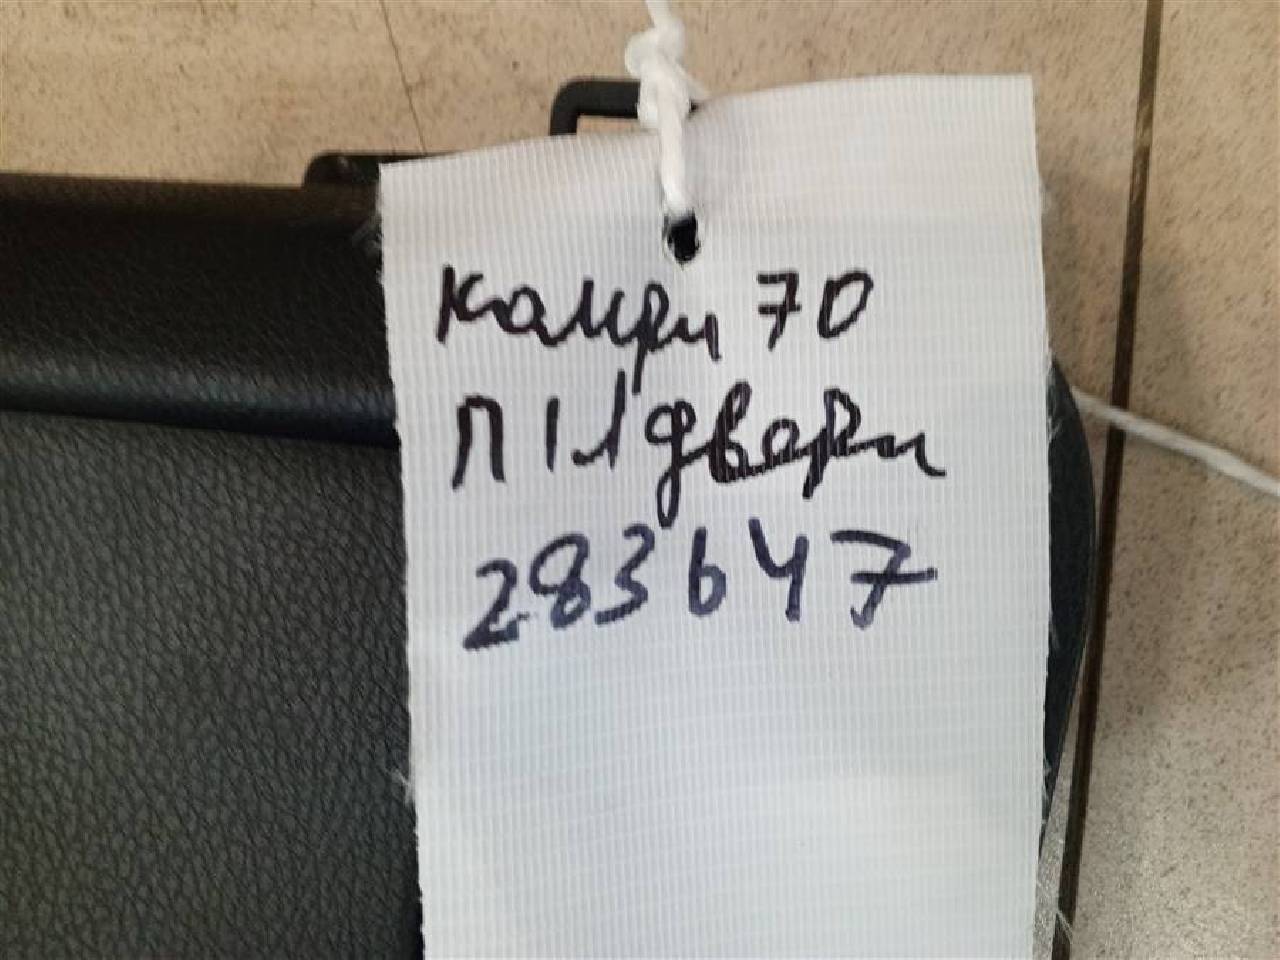 Камри 70
П Л двери
283647